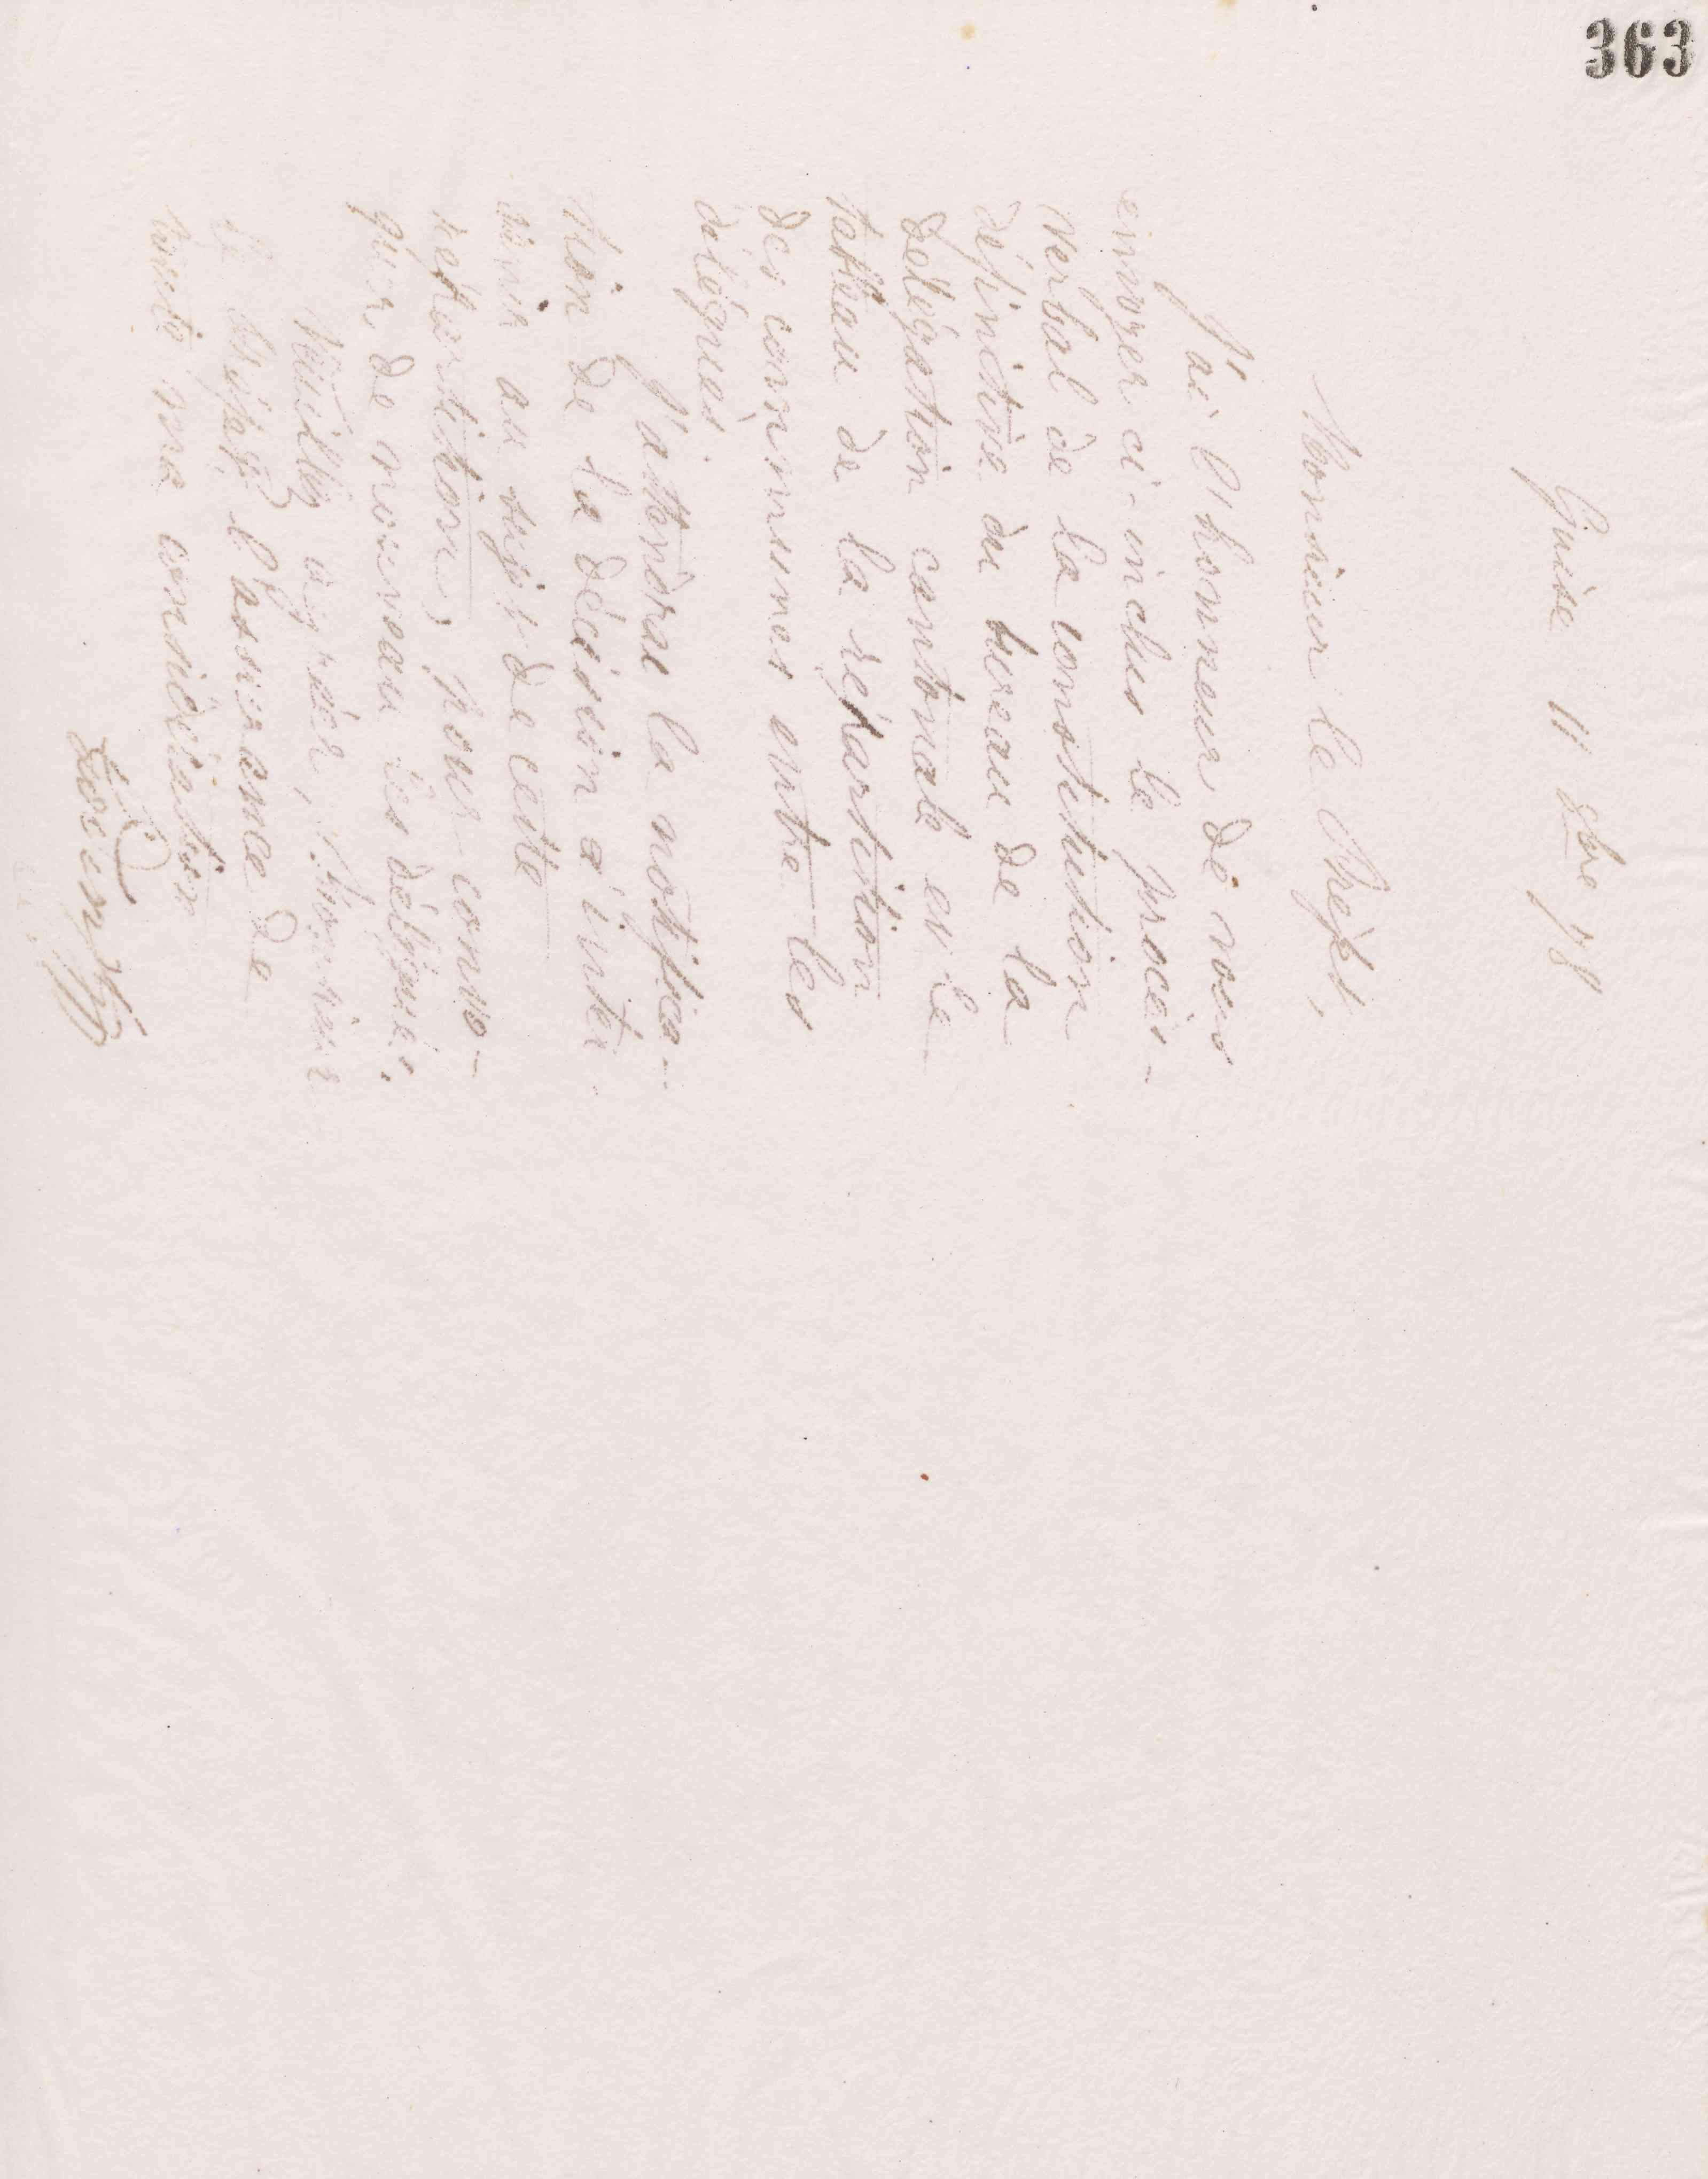 363
Guise 11 8bre 78
Monsieur le Préfet,
J'ai l'honneur de vous
envoyer ci-inclus le procès-
verbal de la constitution
définitive du bureau de la
Délégation cantonale et le
tableau de la répartition
des communes entre les
délégués
J'attendrai la notifica-
tion de la décision à inter
venir au sujet de cette
répartition, pour convo-
quer de nouveau les délégués.
Veuillez agréer, Monsieur
le Préfet l'assurance de
toute ma considération
Godin